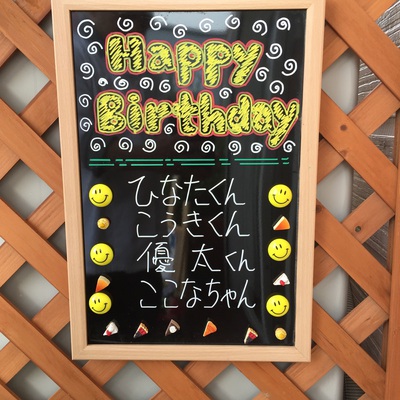 Happy
Birthday
ひなたくん
こうきくん
優太くん
ここなちゃん